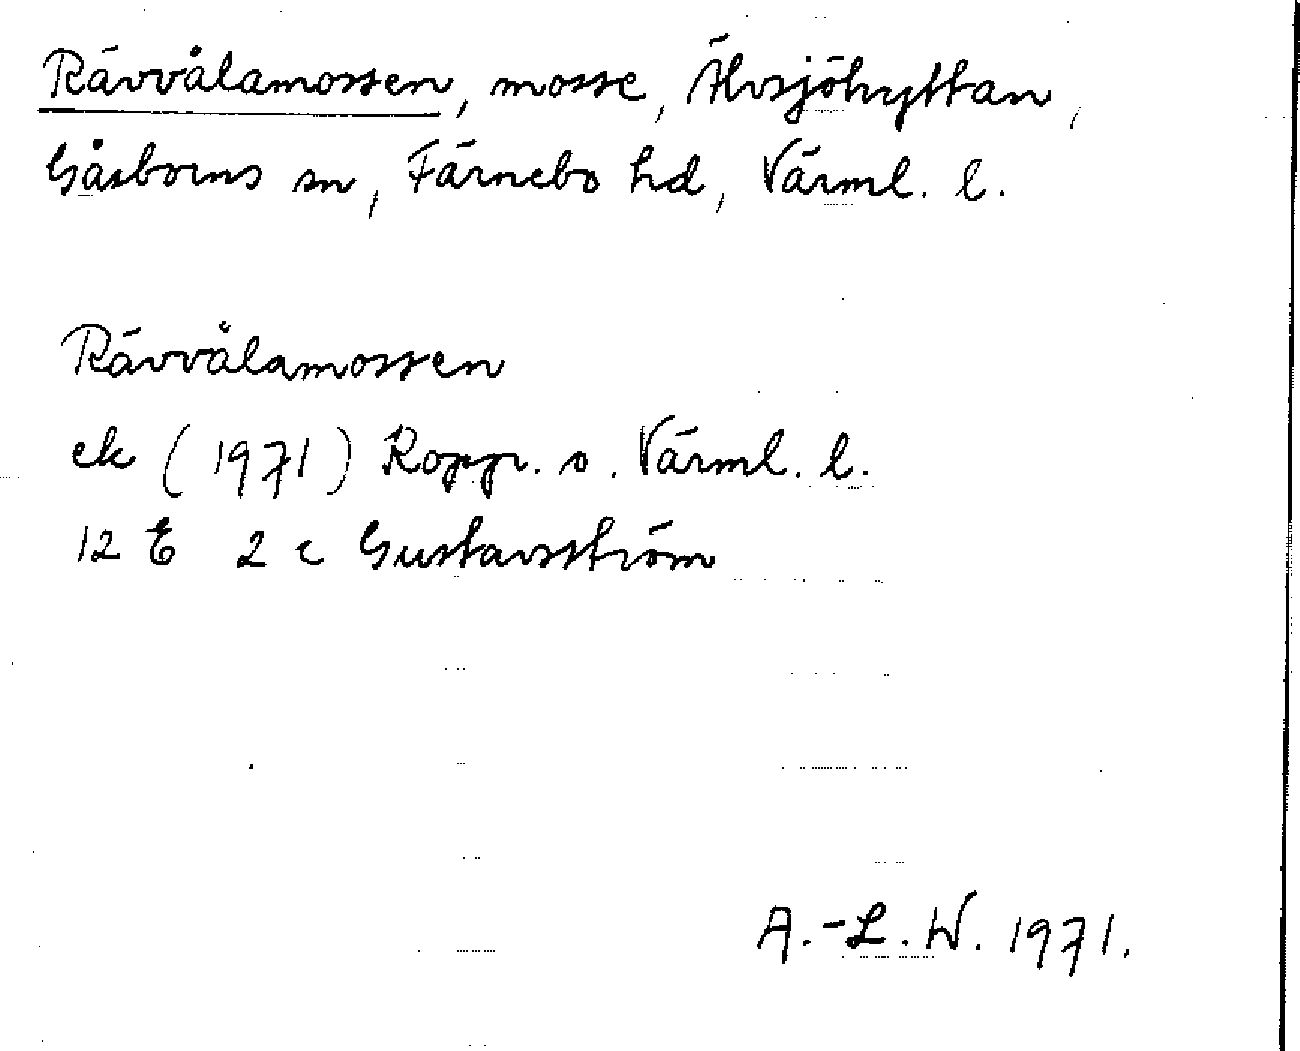 Rävvålamossen, mosse, Älvsjöhyttan,
Gåsborns sn, Färnebo hd, Värml. l.
Rävvålamossen
ek (1971) Koppr. o. Värml. l.
12 E 2 c Gustavsström
A.-L. W. 1971.